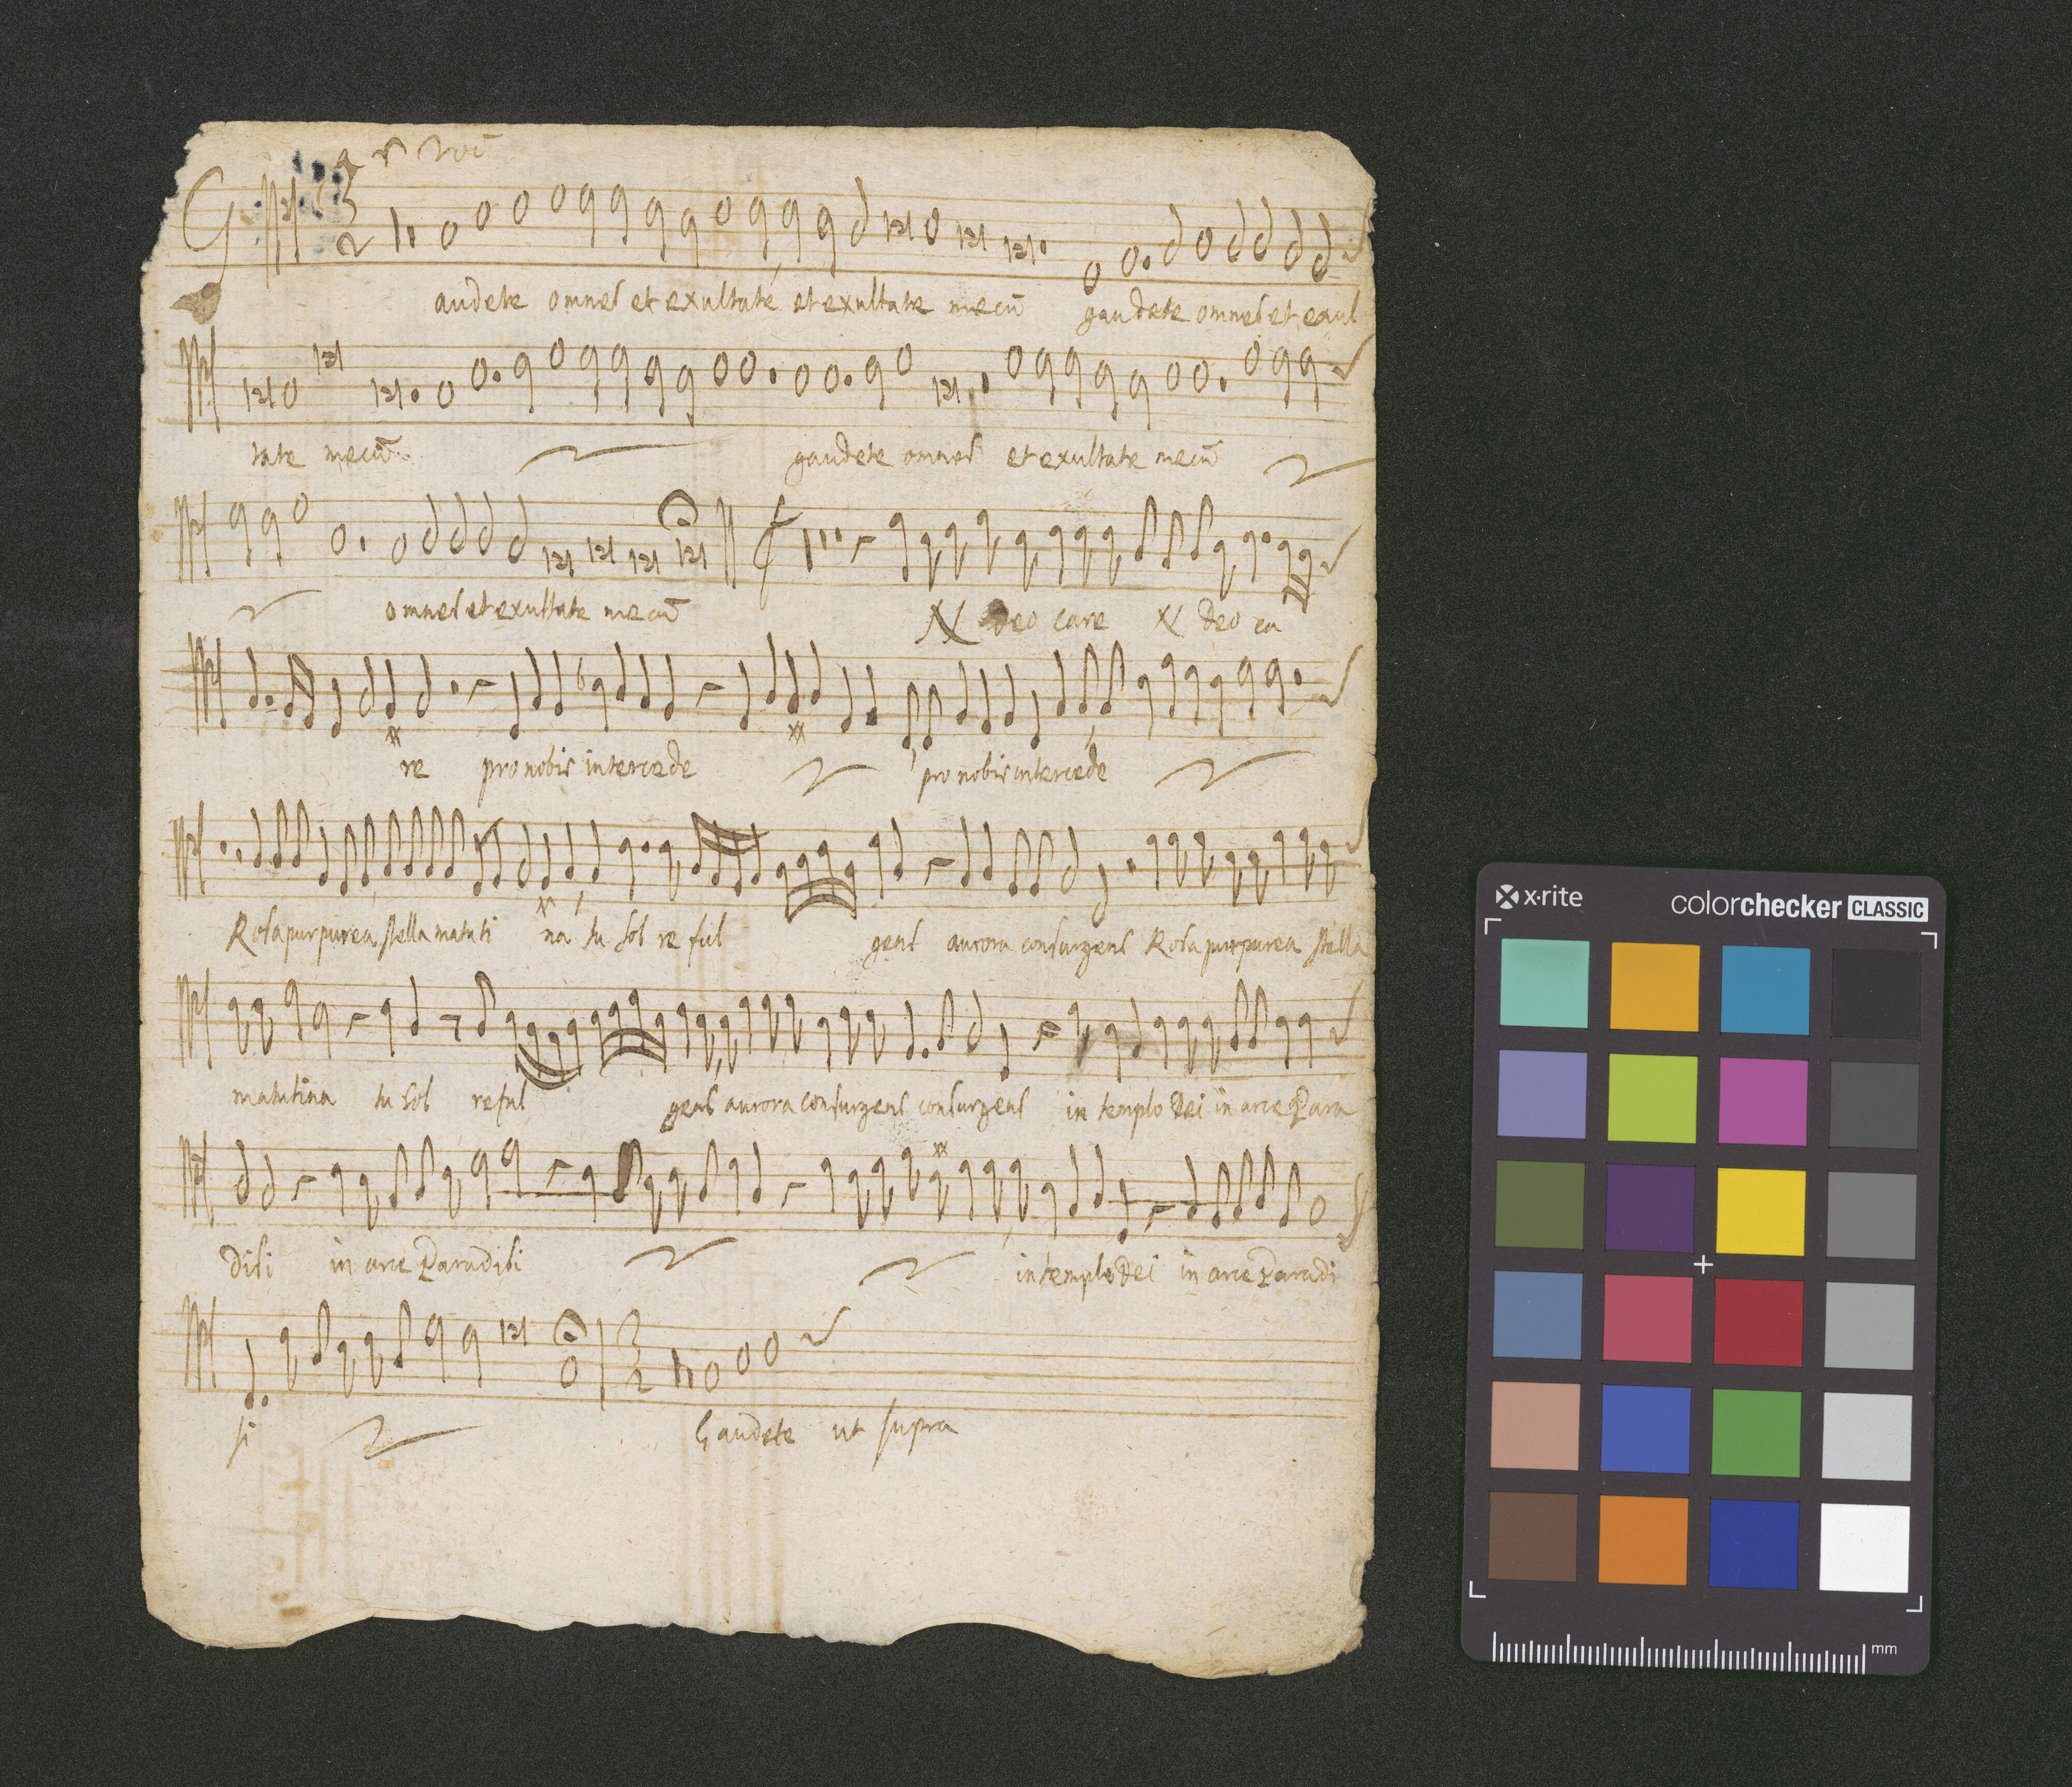 G audete omnes et exultate et exultate mecū gaudete omnes et exul
tate mecū gaudete omnes et exultate mecū
omnes et exultate mecū N deo care N deo ca
re pro nobis intercede pro nobis intercede
Rosa purpurea stella matuti na tu sol re ful gens aurora consurgens Rosa purpurea stella
matutina tu sol reful gens aurora consurgens consurgens in templo Dei in arce Para
disi in arce Paradisi in templo Dei in arce Paradi
si Gaudete ut supra
x·rite colorchecker CLASSIC
mm